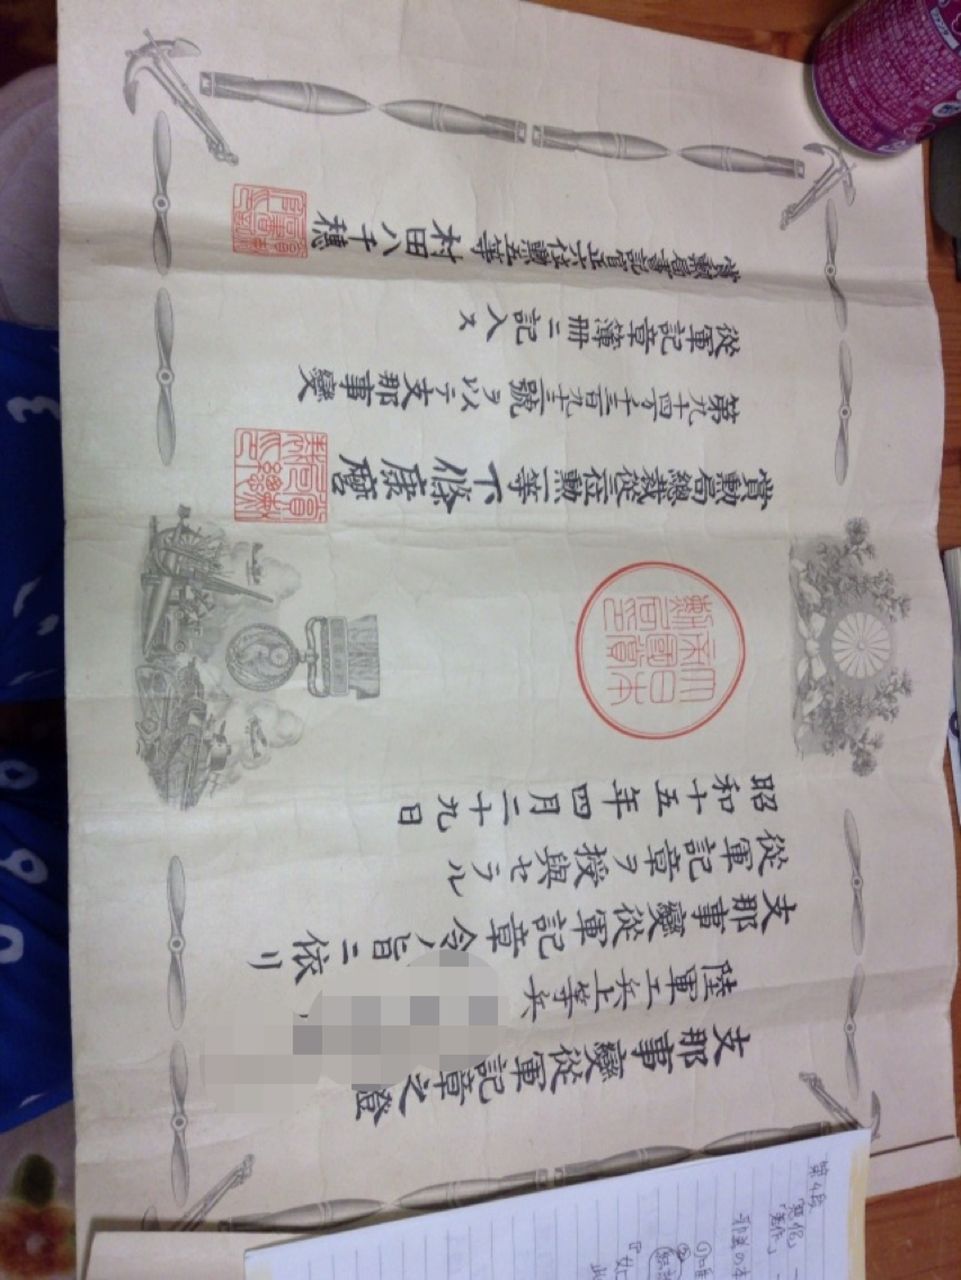 支那事變從軍記章之證
陸軍工兵上等兵
支那事變從軍記章令ノ旨ニ依リ
從軍記章ヲ授與セラル
昭和十五年四月二十九日
大日本帝國賞勳局印
賞勳局總裁從三位勲二等下條康麿
第九十四万千三百九十三號ヲ以テ支那事變
從軍記章簿冊ニ記入ス
賞勲局書記官正六位勲五等村田八千穂
第4段